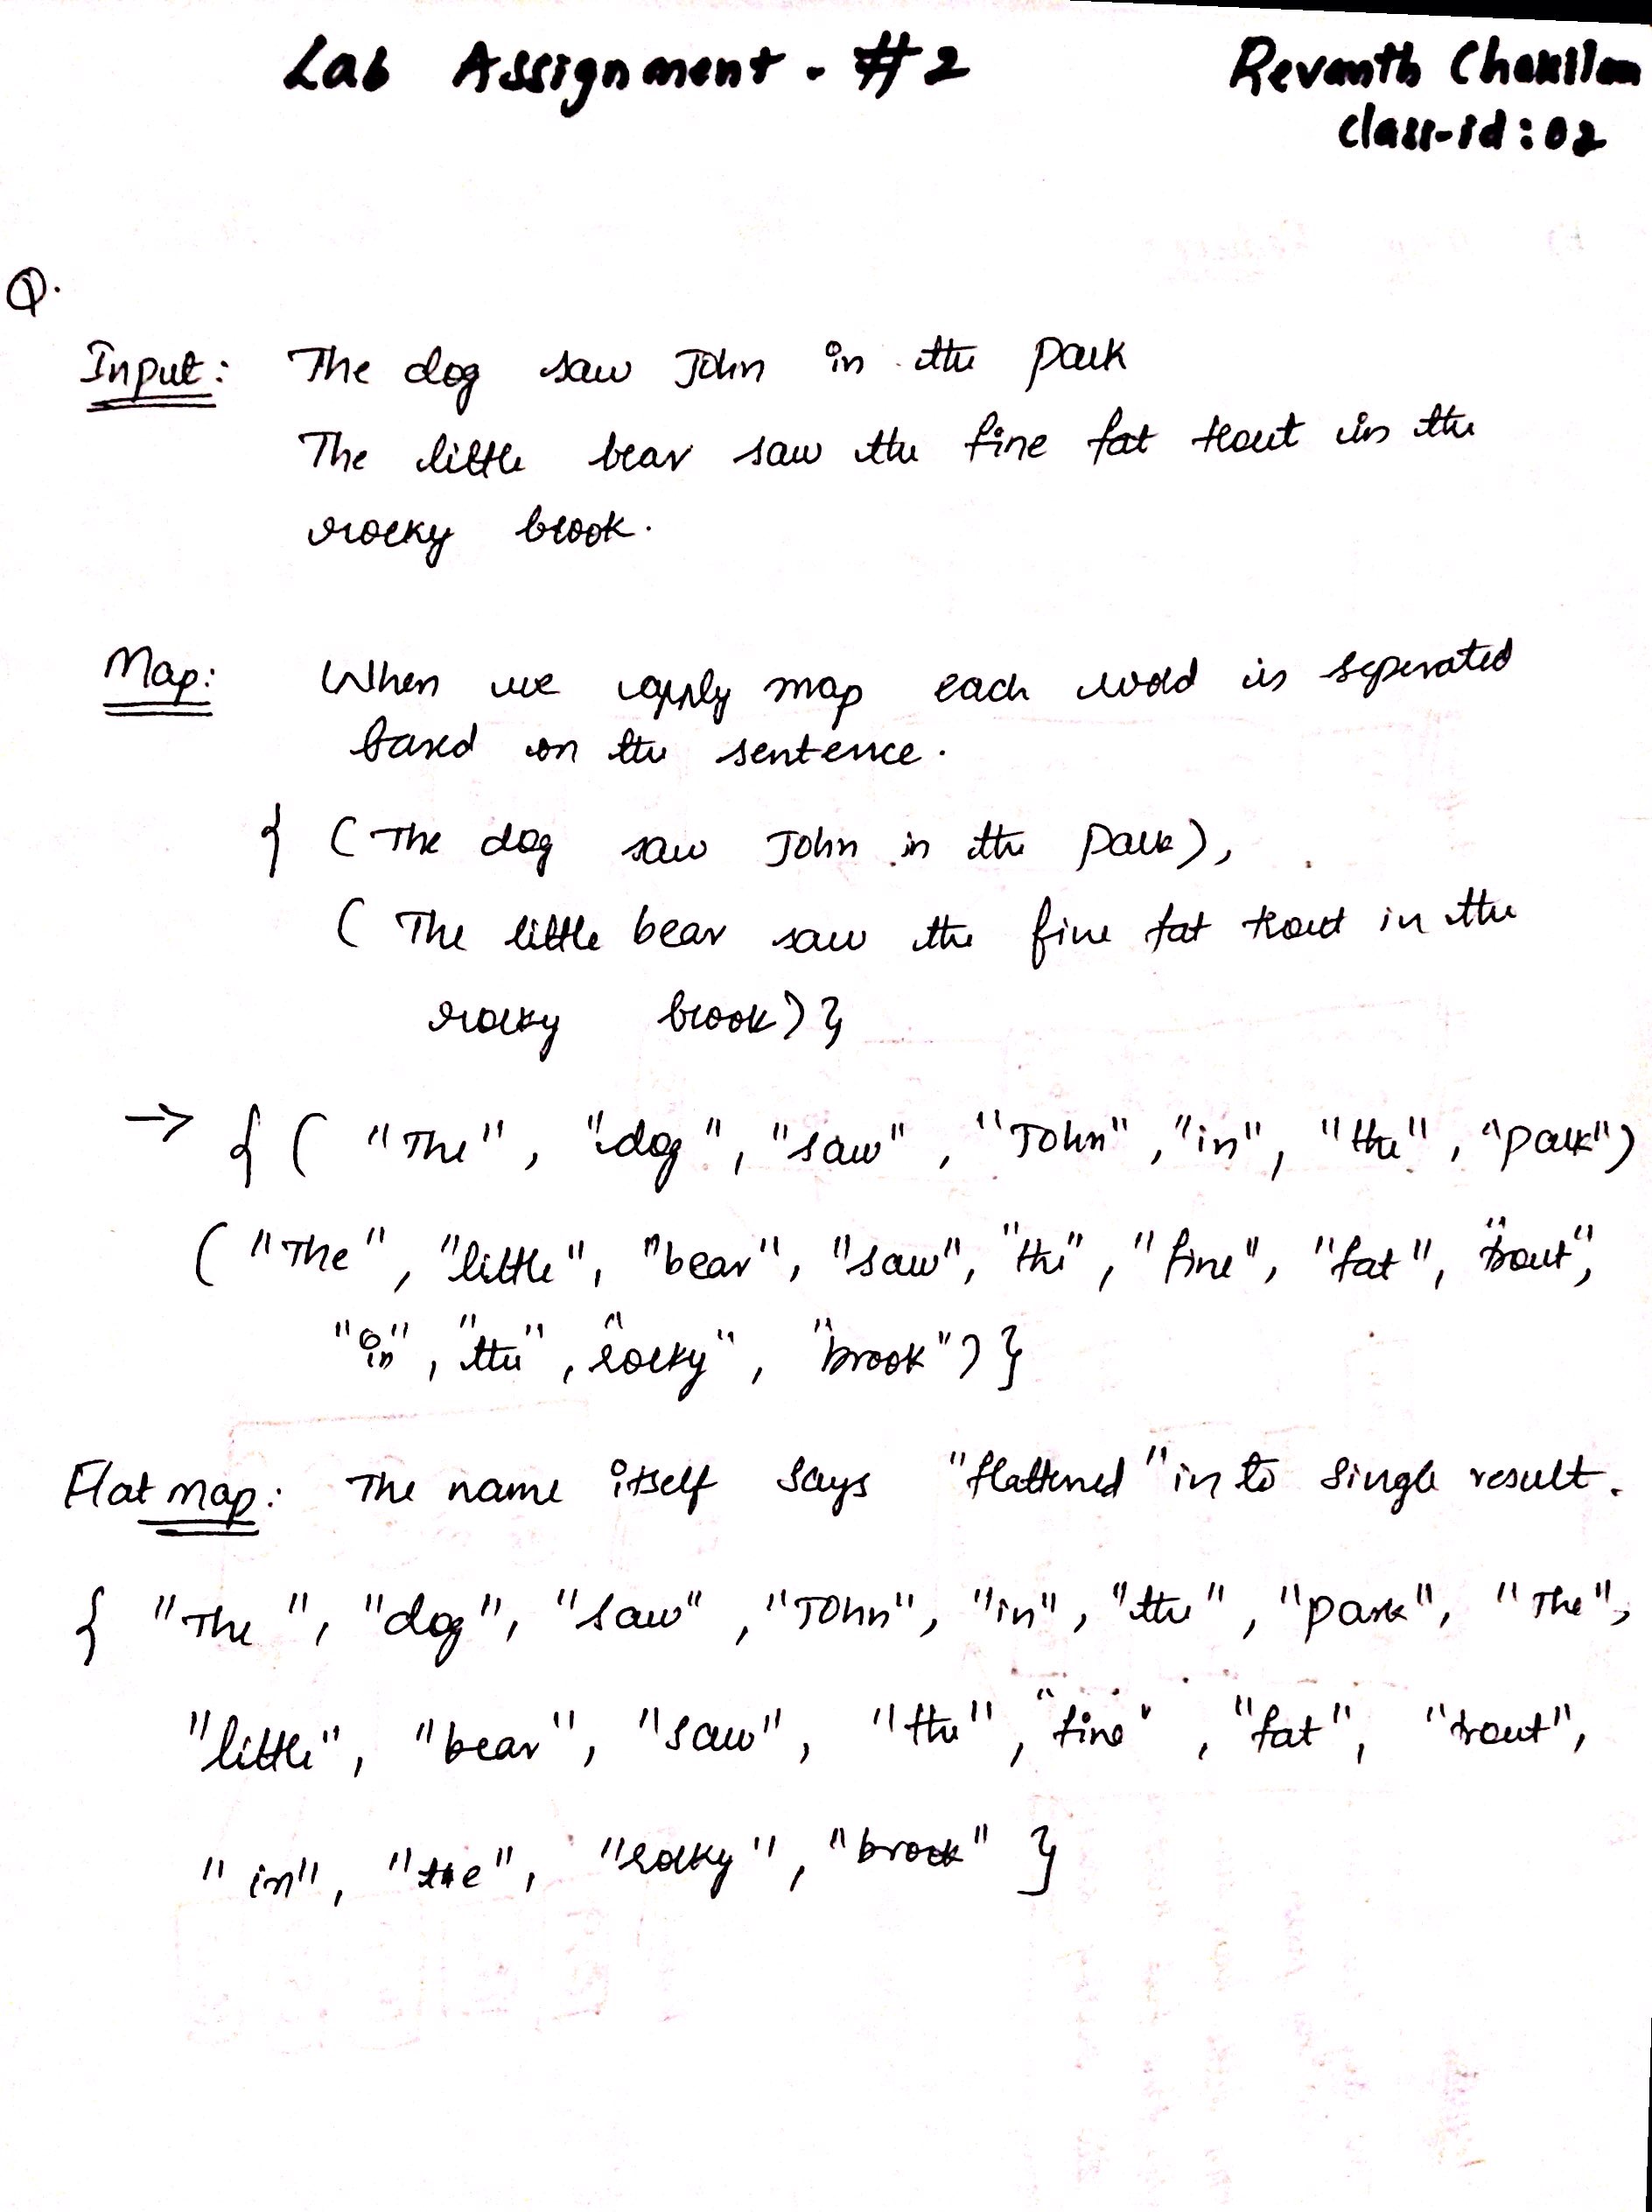 Lab Assignment - #2
Revanth Chakilam
class-id: 02
Q.
Input: The dog saw John in the park
The little bear saw the fine fat trout in the
rocky brook.
Map: When we apply map each word is seperated
based on the sentence.
{ (The dog saw John in the park),
( The little bear saw the fine fat trout in the
rocky brook) }
→ { ( "The", "dog", "saw", "John", "in", "the", "park")
( "The", "little", "bear", "saw", "the", "fine", "fat", "trout",
"in", "the", "rocky", "brook") }
Flat map: The name itself says "flattened" in to single result.
{ "The", "dog", "saw", "John", "in", "the", "park", "The",
"little", "bear", "saw", "the", "fine", "fat", "trout",
"in", "the", "rocky", "brook" }